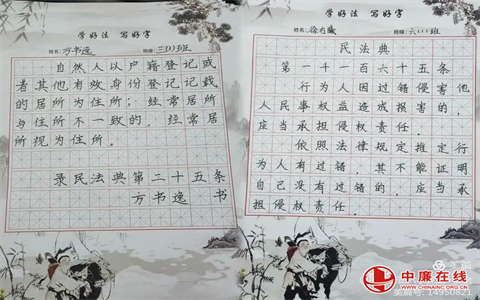 学好法 写好字
姓名：方书逸 班级：三(1)班
自然人以户籍登记或
者其他有效身份登记记载
的居所为住所；经常居所
与住所不一致的，经常居
所视为住所。
录民法典第二十五条
方书逸 书
学好法 写好字
姓名： 班级：六(1)班
民法典
第一千一百六十五条
行为人因过错侵害他
人民事权益造成报害的，
应当承担侵权责任。
依照法律规定推定行
为人有过错，其不能证明
自己没有过错的，应当承
担侵权责任。
中廉在线
WWW.CHINAINC.ORG.CN